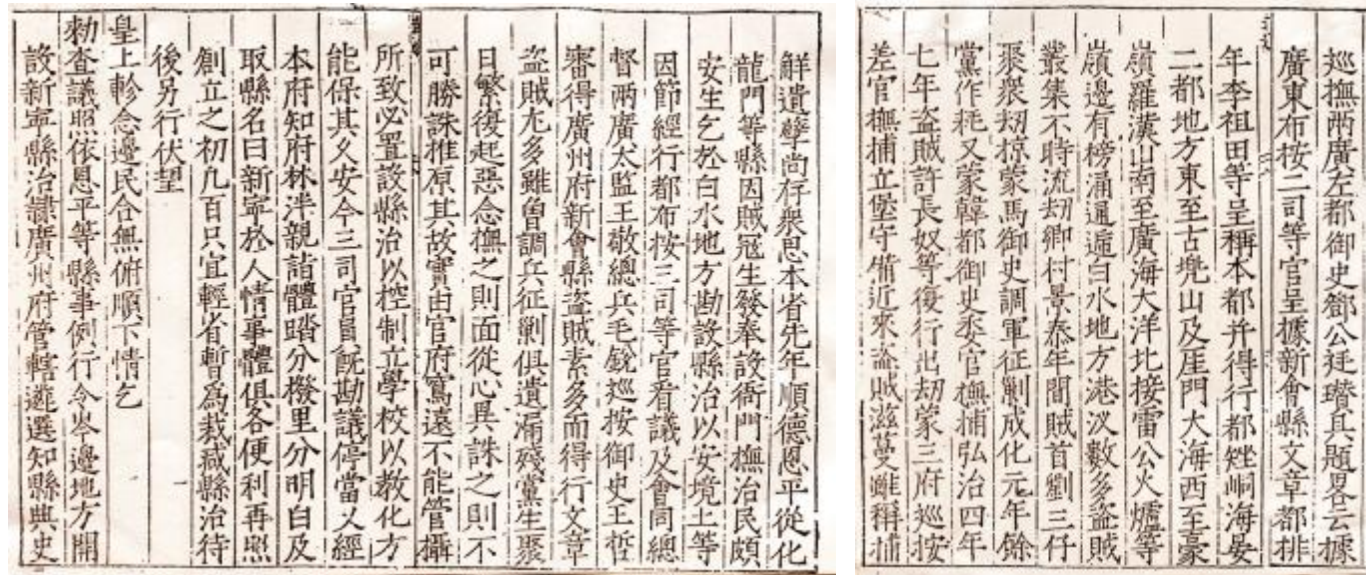 巡撫兩廣左都御史鄧公廷瓚具題畧云據
廣東布按二司等官呈據新會縣文章都排
年李祖田等呈稱本都并得行都矬峒海晏
二都地方東至古兠山及厓門大海西至豪
嶺羅漢山南至廣海大洋北接雷公火爐等
嶺邊有榜涌通遞白水地方港汊數多盗賊
叢集不時流刼鄉村景泰年間賊首劉三仔
聚衆刼掠蒙馬御史調軍征剿成化元年餘
黨作耗又蒙韓都御史委官撫捕弘治四年
七年盗賊許長奴等復行出刼蒙三府巡按
差官撫捕立堡守備近來盗賊滋蔓雖稱捕
鮮遺孽尚存衆思本省先年順德恩平從化
龍門等縣因賊冦生發奉設衙門撫治民頗
安生乞於白水地方勘設縣治以安境土等
因節經行都布按三司等官看議及會同總
督兩廣太監王敬總兵毛銳巡按御史王哲
審得廣州府新會縣盗賊素多而得行文章
盗賊尤多雖曾調兵征剿俱遺漏殘黨生聚
日繁復起惡念撫之則面從心異誅之則不
可勝誅推原其故實由官府寫遠不能管攝
所致必置設縣治以控制立學校以教化方
能保其乂安今三司官員旣勘議停當又經
本府知府林泮親詣體踏分撥里分明白及
取縣名曰新寧於人情事體俱各便利再照
創立之初凡百只宜輕省暫為裁减縣治待
後另行伏望
皇上軫念邊民合無俯順下情乞
勑查議照依恩平等縣事例行令岑邊地方開
設新寧縣治隸廣州府管轄選選知縣典史